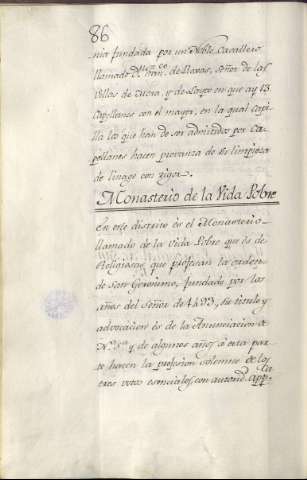 86
nia fundada por un Noble Cavallero
llamado Dn. franco. de Roxas, Señor de las
Villas de Mora, y de Layos en que ay 13
Capellanes con el mayor, en la qual capi-
lla los que han de ser admitidos por ca-
pellanes hacen provanza de su limpieza
de linage con rigor.
Monasterio de la Vida Pobre
En este distrito és el Monasterio
llamado de la Vida Pobre que és de
Religiosas, que profesan la orden
de San Geronimo, fundado por los
años del Señor de 1493, su titulo y
advocacion és de la Anunciacion de
Na. Sa. y de algunos años á esta par-
te hacen la profesion solemne de los
tres votos esenciales, con autord. appca.